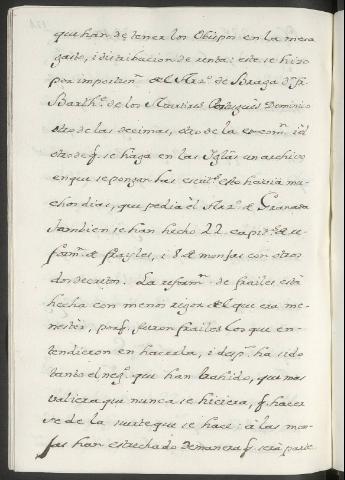 que han de tener los Obispos en la mesa
gasto, i distribucion de renta: este se hizo
por importun.n del Arz.o de Braga D. fr.
Barth.e de los Martires Portugues Dominico
otro de las decimas, otro de la excom.n i el
otro de q se haga en las Iglas un archivo
en que se pongan las escrit.s esto havia mu-
chos dias, que pedia el Arz.o de Granada
Tambien se han hecho 22 capit.s de re-
form.n de frayles, i 8 de monjas con otros
dos decretos. La reform.n de frailes está
hecha con menos rigor del que era me-
nester, porq. fueron frailes los que en-
tendieron en hacerla, i desp.s ha sido
tanto el neg.o que han trahido, que mas
valiera que nunca se hiciera, q. hacer
se de la suerte que se hace: á las mon-
jas han estrechado de manera q. será parte